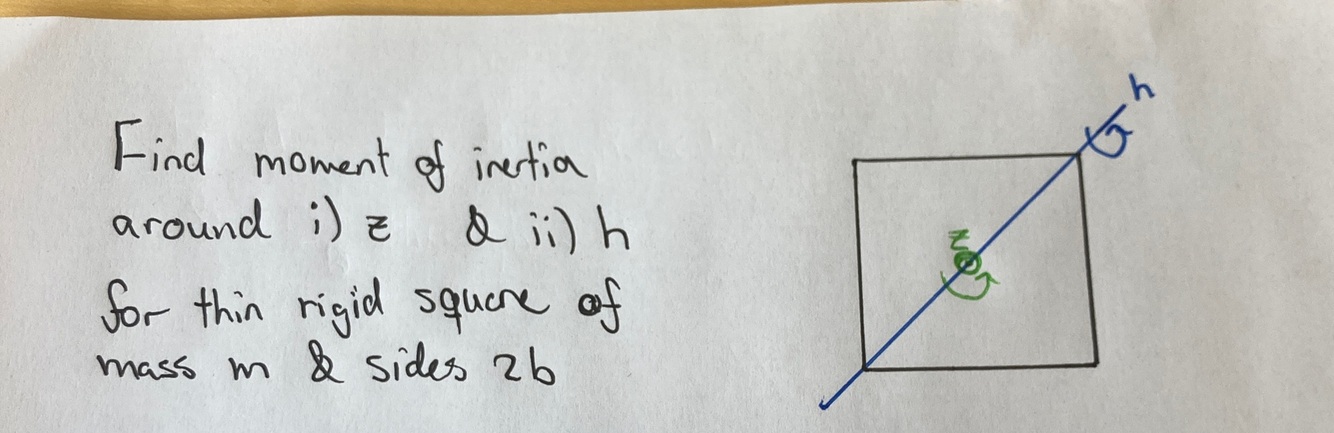 Find moment of inertia
around i) z & ii) h
for thin rigid square of
mass m & sides 2b
h
z